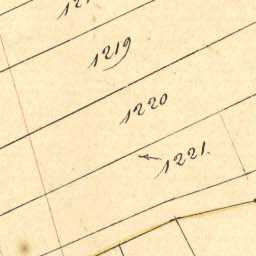 1219
1220
1221.